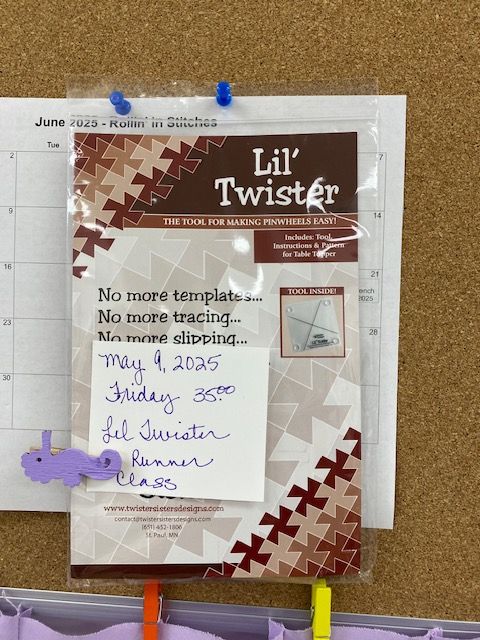 June 2025 - Rollin' In Stitches
Tue
2
7
9
14
16
21
2025
23
28
30
Lil'
Twister
THE TOOL FOR MAKING PINWHEELS EASY!
Includes: Tool,
Instructions & Pattern
for Table Topper
TOOL INSIDE!
No more templates...
No more tracing...
No more slipping...
May 9, 2025
Friday 35.00
Lil Twister
Runner
Class
www.twistersistersdesigns.com
contact@twistersistersdesigns.com
(651) 452-1806
St. Paul, MN